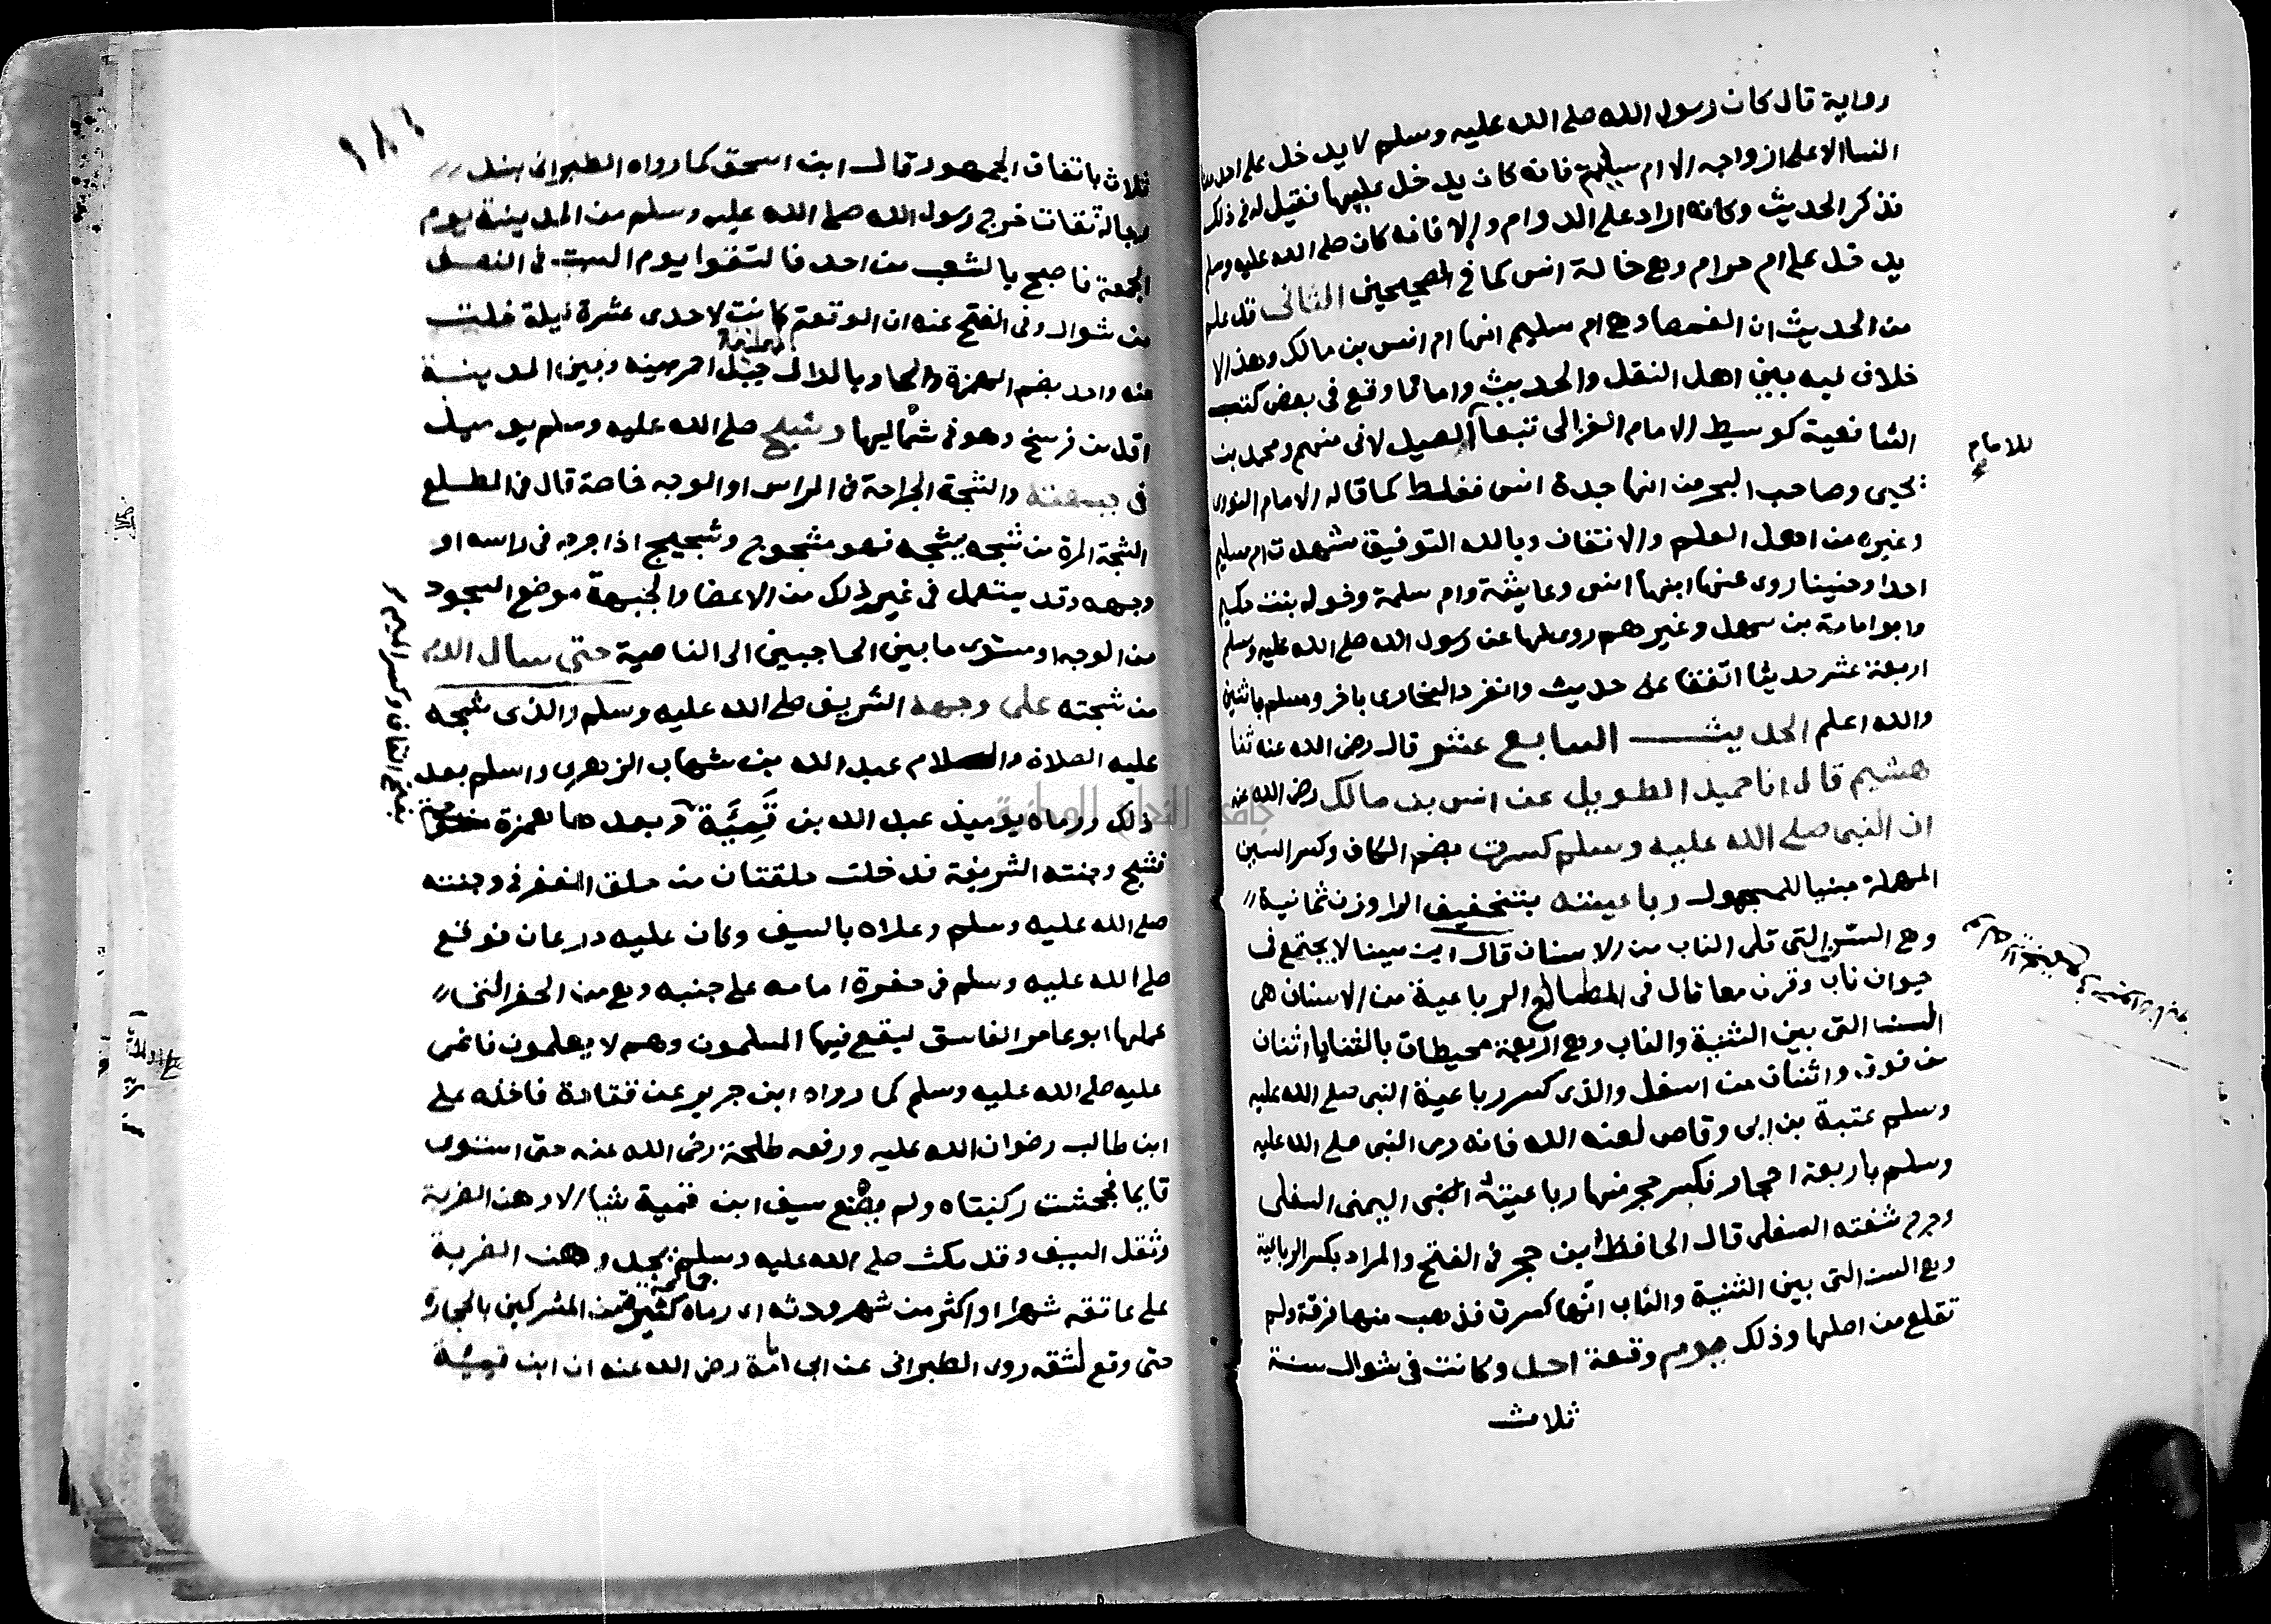 رواية قال كان رسول الله صلى الله عليه وسلم لا يدخل على احد من
النسا الا على ازواجه الا ام سليم فانه كان يدخل عليها فقيل له في ذلك
فذكر الحديث وكانه اراد على الدوام والا فانه كان صلى الله عليه وسلم
يدخل على ام حرام وهي خالة انس كما في الصحيحين الثاني قد علم
من الحديث ان الغميصا وهي ام سليم انها ام انس بن مالك وهذا لا
خلاف فيه بين اهل النقل والحديث واما ما وقع في بعض كتب
الشافعية كوسيط الامام الغزالى تبعا الصيدلاني منهم ومحمد بن
للامام
يحيى وصاحب البحر من انها جدة انس فغلط كما قاله الامام النووى
وغيره من اهل العلم والاتقان وبالله التوفيق شهدت ام سليم
احدا وحنينا روى عنها ابنها انس وعايشة وام سلمة وخوله بنت حكيم
وابو امامة بن سهل وغيرهم روى لها عن رسول الله صلى الله عليه وسلم
اربعة عشر حديثا اتفقا على حديث وانفرد البخارى باخر ومسلم باثنين
والله اعلم الحديث السابع عشر قال رضى الله عنه ثنا
هشيم قال انا حميد الطويل عن انس بن مالك رضى الله عنه
ان النبي صلى الله عليه وسلم كسرت بضم الكاف وكسر السين
المهملة مبنيا للمجهول رباعيته بتخفيف الرا وزن ثمانية
وهي السن التي تلى الناب من الاسنان قال ابن سينا لا يجتمع في
حيوان ناب وقرن معا قال في المطالع الرباعية من الاسنان هي
السن التي بين الثنية والناب وهي اربعة محيطات بالثنايا اثنان
من فوق واثنان من اسفل والذى كسر رباعية النبي صلى الله عليه
وسلم عتبة بن ابي وقاص لعنه الله فانه رمى النبي صلى الله عليه
وسلم باربعة احجار فكسر حجر منها رباعيته اليمنى السفلى
وجرح شفته السفلى قال الحافظ ابن حجر في الفتح والمراد بكسر الرباعية
وهي السن التي بين الثنية والناب انها كسرت فذهب منها فرقة ولم
تقلع من اصلها وذلك يوم وقعة احد وكانت في شوال سنة
ثلاث
١٨٦
ثلاث باتفاق الجمهور قال ابن اسحق كما رواه الطبراني بسند
رجاله ثقات خرج رسول الله صلى الله عليه وسلم من المدينة يوم
الجمعة فاصبح بالشعب من احد فالتقوا يوم السبت في النصف
من شوال وفى الفتح عنه ان الوقعة كانت لاحدى عشرة ليلة خلت
منه واحد بضم الهمزة والحا وبالدال جبل احمر بينه وبين المدينة
اقل من فرسخ وهو في شماليها وشج صلى الله عليه وسلم يوميذ
في جبهته والشجة الجراحة في الراس او الوجه خاصة قال في المطلع
الشجة المرة من شجه يشجه فهو مشجوج وشجيج اذا جرحه في راسه او
وجهه وقد يستعمل في غير ذلك من الاعضا والجبهة موضع السجود
من الوجه او مستوى ما بين الحاجبين الى الناصية حتى سال الدم
من شجته على وجهه الشريف صلى الله عليه وسلم والذى شجه
عليه الصلاة والسلام عبد الله بن شهاب الزهرى واسلم بعد
ذلك ورماه يوميذ عبد الله بن قَمِئَة وبعدها همزة
بفتح القاف وكسر الميم
فشج وجنته الشريفة فدخلت حلقتان من حلق المغفر في وجنته
صلى الله عليه وسلم وعلاه بالسيف وكان عليه درعان فوقع
صلى الله عليه وسلم في حفرة امامه على جنبه وهي من الحفر التي
عملها ابو عامر الفاسق ليقع فيها المسلمون وهم لا يعلمون فاغمى
عليه صلى الله عليه وسلم كما رواه ابن جرير عن قتادة فاخذه على
ابن طالب رضوان الله عليه ورفعه طلحة رضى الله عنه حتى استوى
قايما فجحشت ركبتاه ولم يصنع سيف ابن قمية شيا الا وهن الضربة
وثقل السيف وقد مكث صلى الله عليه وسلم يجد وهن الضربة
على عاتقه شهرا او اكثر من شهر ودثه اى رماه كثير من المشركين بالحجارة
حتى وقع لشقه روى الطبراني عن ابي امامة رضى الله عنه ان ابن قمية